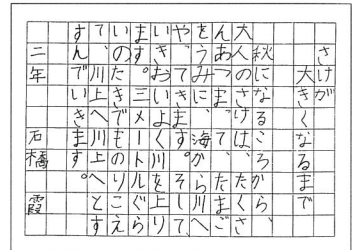 さけが
大きくなるまで
秋になるころから、
大人のさけは、たくさ
んあつまって、たまご
をうみに、海から川へ
やってきます。そして、
いきおいよく川を上り
ます。三メートルぐら
いのたきものりこえ
て、川上へ川上へとす
すんでいきます。
二年 石橋 霞